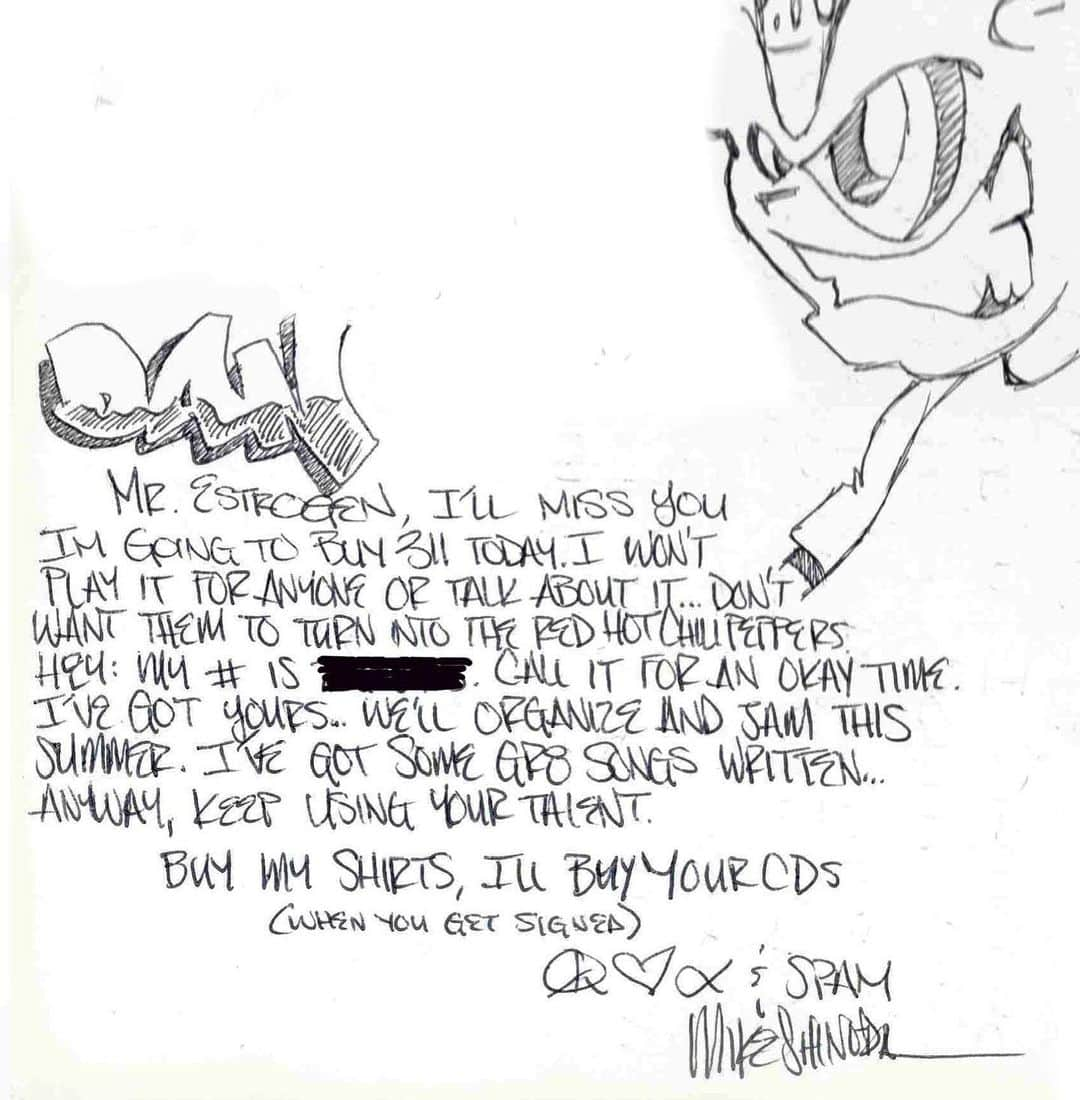 DAN
MR. ESTROGEN, I'LL MISS YOU
IM GOING TO BUY 311 TODAY. I WON'T
PLAY IT FOR ANYONE OR TALK ABOUT IT... DON'T
WANT THEM TO TURN INTO THE RED HOT CHILI PEPPERS.
HEY: MY # IS . CALL IT FOR AN OKAY TIME.
I'VE GOT YOURS... WE'LL ORGANIZE AND JAM THIS
SUMMER. I'VE GOT SOME GR8 SONGS WRITTEN...
ANYWAY, KEEP USING YOUR TALENT.
BUY MY SHIRTS, I'LL BUY YOUR CDS
(WHEN YOU GET SIGNED)
& SPAM
MIKE SHINODA